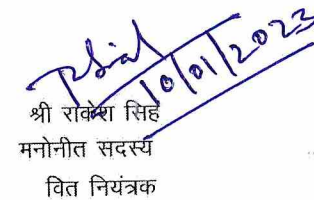 10/01/2023
श्री राकेश सिंह
मनोनीत सदस्य
वित नियंत्रक